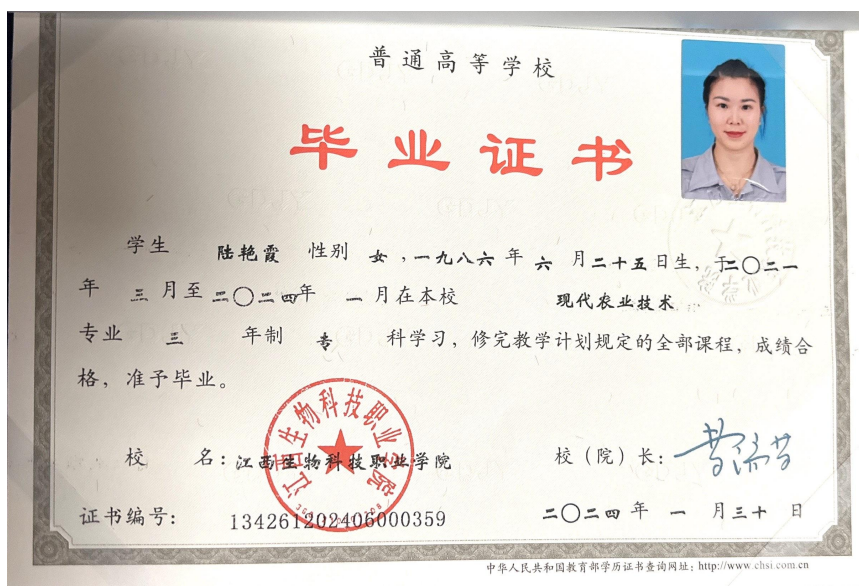 普通高等学校
毕业证书
学生 陆艳霞 性别 女,一九八六年 六 月二十五日生,于二〇二一
年 三 月至 二〇二四年 一 月在本校 现代农业技术
专业 三 年制 专 科学习,修完教学计划规定的全部课程,成绩合
格,准予毕业。
江西生物科技职业学院
校 名:江西生物科技职业学院 校(院)长:
证书编号: 134261202406000359 二〇二四 年 一 月三十 日
中华人民共和国教育部学历证书查询网址:http://www.chsi.com.cn